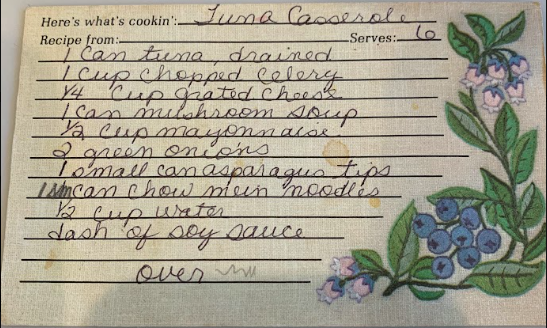 Here's what's cookin': Tuna Casserole
Recipe from: Serves: 6
1 Can tuna, drained
1 Cup Chopped Celery
1/4 Cup grated cheese
1 Can mushroom soup
1/2 Cup mayonnaise
2 green onions
1 small can asparagus tips
1 sm can chow mein noodles
1/2 cup water
dash of soy sauce
over